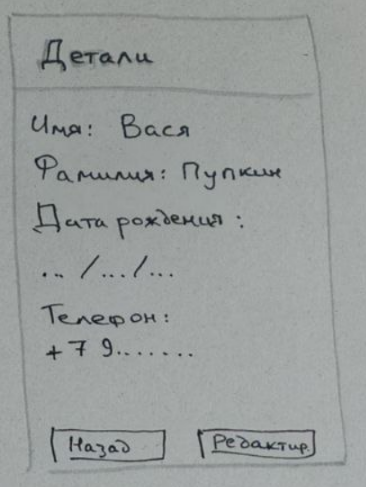 Детали
Имя: Вася
Фамилия: Пупкин
Дата рождения:
.. /.../...
Телефон:
+7 9.......
Назад
Редактир.